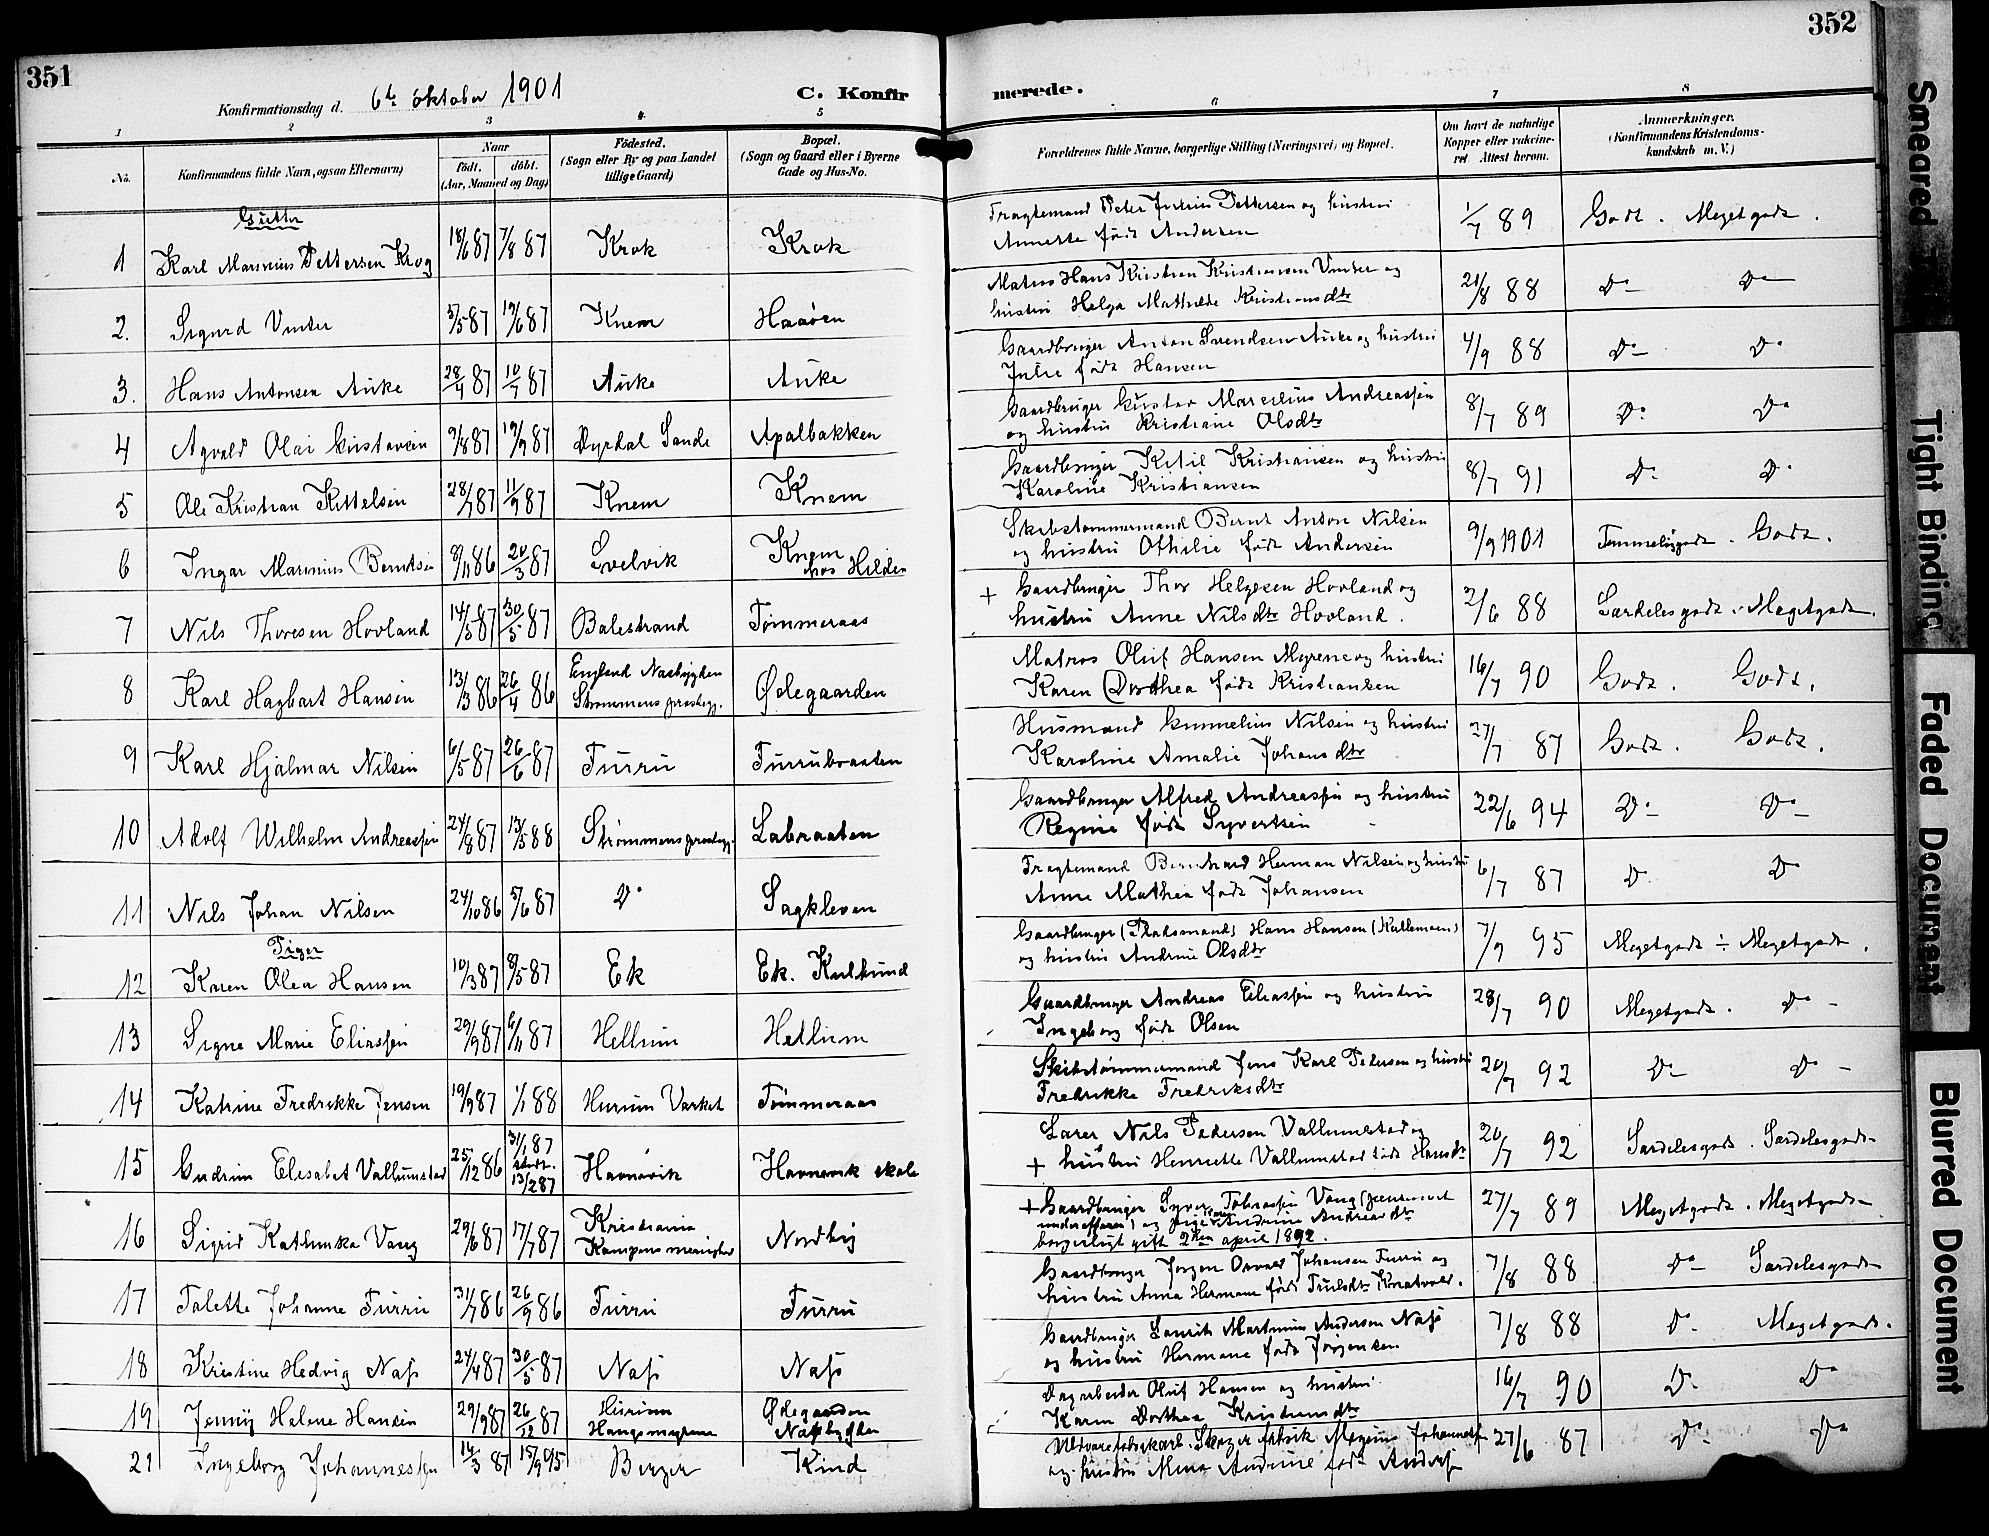 351
Konfirmationsdag d. 6te oktober 1901
C. Konfir
1 2 3 4 5
No.
Konfirmandens fulde Navn, ogsaa Efternavn)
Naar
födt. döbt.
(Aar, Maaned og Dag)
Födested.
(Sogn eller By og paa Landet
tillige Gaard)
Bopæl.
(Sogn og Gaard eller i Byerne
Gade og Hus-No.
Gutter
1 Karl Marinius Pettersen Krog 18/6 87 7/8 87 Krok Krok
2. Sigurd Vinter 3/5 87 19/6 87 Knem Haaöen
3. Hans Antonsen Auke 28/4 87 10/7 87 Auke Auke
4 Agvald Olai Gustavsen 9/8 87 19/9 87 Dyrdal Sande Apalbakken
5 Ole Kristian Kittelsen 28/7 87 11/9 87 Knem Knem
6 Ingar Marinius Berntsen 8/11 86 20/3 87 Svelvik Knem
hos Hilden
7 Nils Thoresen Hovland 14/5 87 30/5 87 Balestrand Tömmeraas
8 Karl Hagbart Hansen 13/3 86 26/4 86 Englund Næsbygden
Strømmens præstegj. Ødegaarden
9 Karl Hjalmar Nilsen 6/5 87 26/6 87 Furru Furrubraaten
10 Adolf Wilhelm Andreassen 24/8 87 13/5 88 Strømmens præstegj. Labraaten
11 Nils Johan Nilsen 24/10 86 5/6 87 Do Sagkleven
Piger
12 Karen Olea Hansen 10/3 87 8/5 87 Ek Ek. Kulkund
13 Signe Marie Eliassen 29/9 87 6/11 87 Hellum Hellum
14 Katrine Fredrikke Jensen 19/9 87 1/1 88 Hurum Varket Tömmeraas
15 Gudrun Elisabet Vallumstad 25/12 86 31/1 87
13/2 87 Havnevik Havnevik skole
16 Sigrid Kathinka Vang 29/6 87 17/7 87 Kristiania
Kampens menighed Nordbÿ
17 Talette Johanne Furru 31/7 86 26/9 86 Furru Furru
18 Kristine Hedvig Næss 24/4 87 30/5 87 Næss Næss
19 Jenny Helene Hansen 29/9 87 26/12 87 Hurum
Haugsmyrene Ødegaarden
Næsbygden
21 Ingeborg Johannessen 14/3 87 15/9 95 Berger Kind
352
merede.
6 7 8
Forældrenes fulde Navne, borgerlige Stilling (Næringsvei) og Bopæl.
Om havt de naturlige
Kopper eller vakcine-
ret Attest herom.
Anmærkninger.
(Konfirmandens Kristendoms-
kundskab m. V.)
Fragtemand Peter Julius Pettersen og hustru
Annette født Andersen 1/7 89 Godt. Megetgodt.
Matros Hans Kristian Kristiansen Vinter og
hustru Helga Mathilde Kristiansdtr 21/8 88 Do Do
Gaardbruger Anton Svendsen Auke og hustru
Julie født Hansen 4/9 88 Do Do
Gaardbruger Gustav Marcelius Andreassen
og hustru Kristiane Olsdtr 8/7 89 Do Do
Gaardbruger Ketil Kristiansen og hustru
Karoline Kristiansen 8/7 91 Do Do
Skibstømmermand Bernt Anton Nilsen
og hustru Othilie født Andersen 9/9 1901 Temmeliggodt. Godt.
+ Gaardbruger Thor Helgesen Hovland og
hustru Anne Nilsdtr Hovland. 2/6 88 Særdelesgodt. Megetgodt.
Matros Oluf Hansen Myrene og hustru
Karen Dorthea født Kristiansen 16/7 90 Godt. Godt.
Husmand Gunnelius Nilsen og hustru
Karoline Amalie Johansdtr 27/7 87 Godt. Godt.
Gaardbruger Alfred Andreassen og hustru
Regine født Syvertsen 22/6 94 Do Do
Fragtemand Bernhard Herman Nilsen og hustru
Anne Mathea født Johansen 6/7 87 Do Do
Gaardbruger (Pladsmand) Hans Hansen (Kullemoen)
og hustru Andrine Olsdtr 7/9 95 Megetgodt ÷ Megetgodt.
Gaardbruger Andreas Eliassen og hustru
Ingeborg født Olsen 28/7 90 Megetgodt. Do
Skibstømmermand Jens Karl Petersen og hustru
Fredrikke Fredriksdtr 20/7 92 Do Do
Lærer Nils Pedersen Vallumstad og
+ hustru Henriette Vallumstad født Hansdtr 20/7 92 Særdelesgodt. Særdelesgodt
+ Gaardbruger Syver Tobiassen Vang (pensioneret
underofficer) og pige Andrine Andreasdtr
borgerligt gift 2den april 1892. 27/7 89 Megetgodt. Megetgodt
Gaardbruger Jørgen Johansen Furru og
hustru Anna Hermane født Trulsdtr Knatvold. 7/8 88 Do Særdelesgodt
Gaardbruger Laurits Martinius Andersen Næss
og hustru Hermane født Jørgensen 7/8 88 Do Megetgodt.
Dagarbeider Oluf Hansen og hustru
Karen Dorthea Kristiansdtr 16/7 90 Do Do
Johannessen
og hustru Mina Andrine født Anders 27/6 87 Do Do
Smeared
Tight Binding
Faded Document
Blurred Document